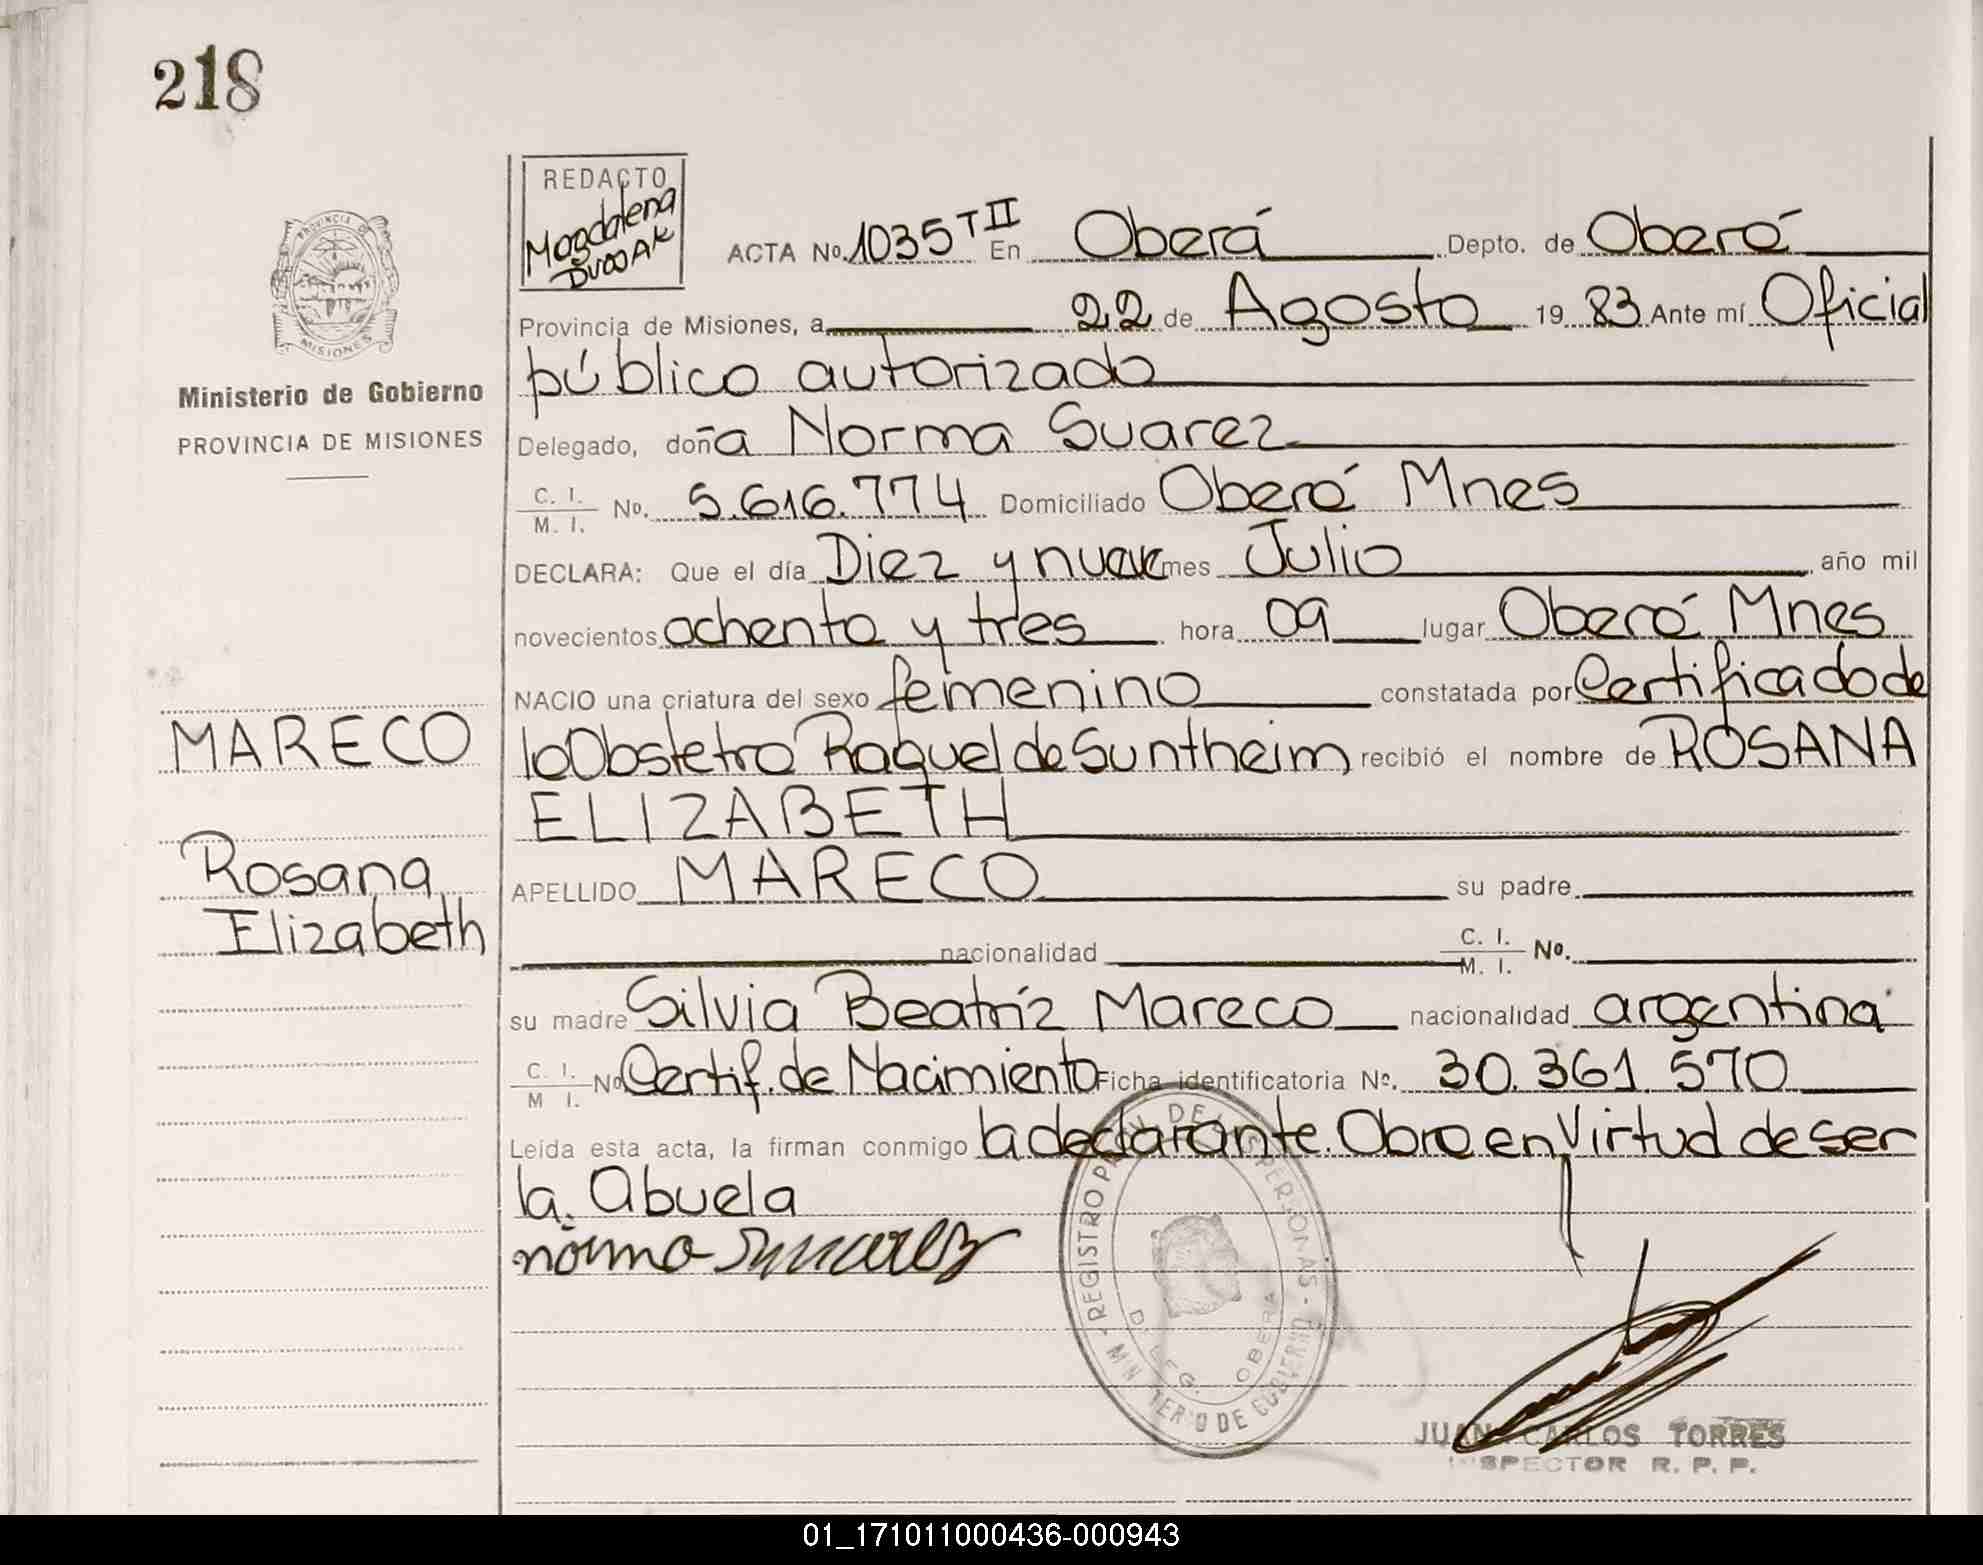 218
REDACTO
Magdalena
ACTA No. 1035 T II En Oberá Depto. de Oberá
Provincia de Misiones, a 22 de Agosto 19 83 Ante mí Oficial
público autorizado
PROVINCIA DE
MISIONES
Ministerio de Gobierno
PROVINCIA DE MISIONES
Delegado, doña Norma Suarez
C. I. / M. I. No. 5.616.774 Domiciliado Oberá Mnes
DECLARA: Que el día Diez y nueve mes Julio año mil
novecientos ochenta y tres hora 09 lugar Oberá Mnes
NACIO una criatura del sexo femenino constatada por Certificado de
la Obstetra Raquel de Suntheim recibió el nombre de ROSANA
ELIZABETH
MARECO
Rosana
Elizabeth
APELLIDO MARECO su padre
nacionalidad C. I. / M. I. No.
su madre Silvia Beatríz Mareco nacionalidad argentina
C. I. / M I. No Certif. de Nacimiento Ficha identificatoria No. 30.361.570
Leída esta acta, la firman conmigo la declarante. Obra en Virtud de ser
la Abuela
norma Suarez
REGISTRO PROV. DE LAS PERSONAS - MINISTERIO DE GOBIERNO
DELEG. OBERA
JUAN CARLOS TORRES
INSPECTOR R. P. P.
01_171011000436-000943